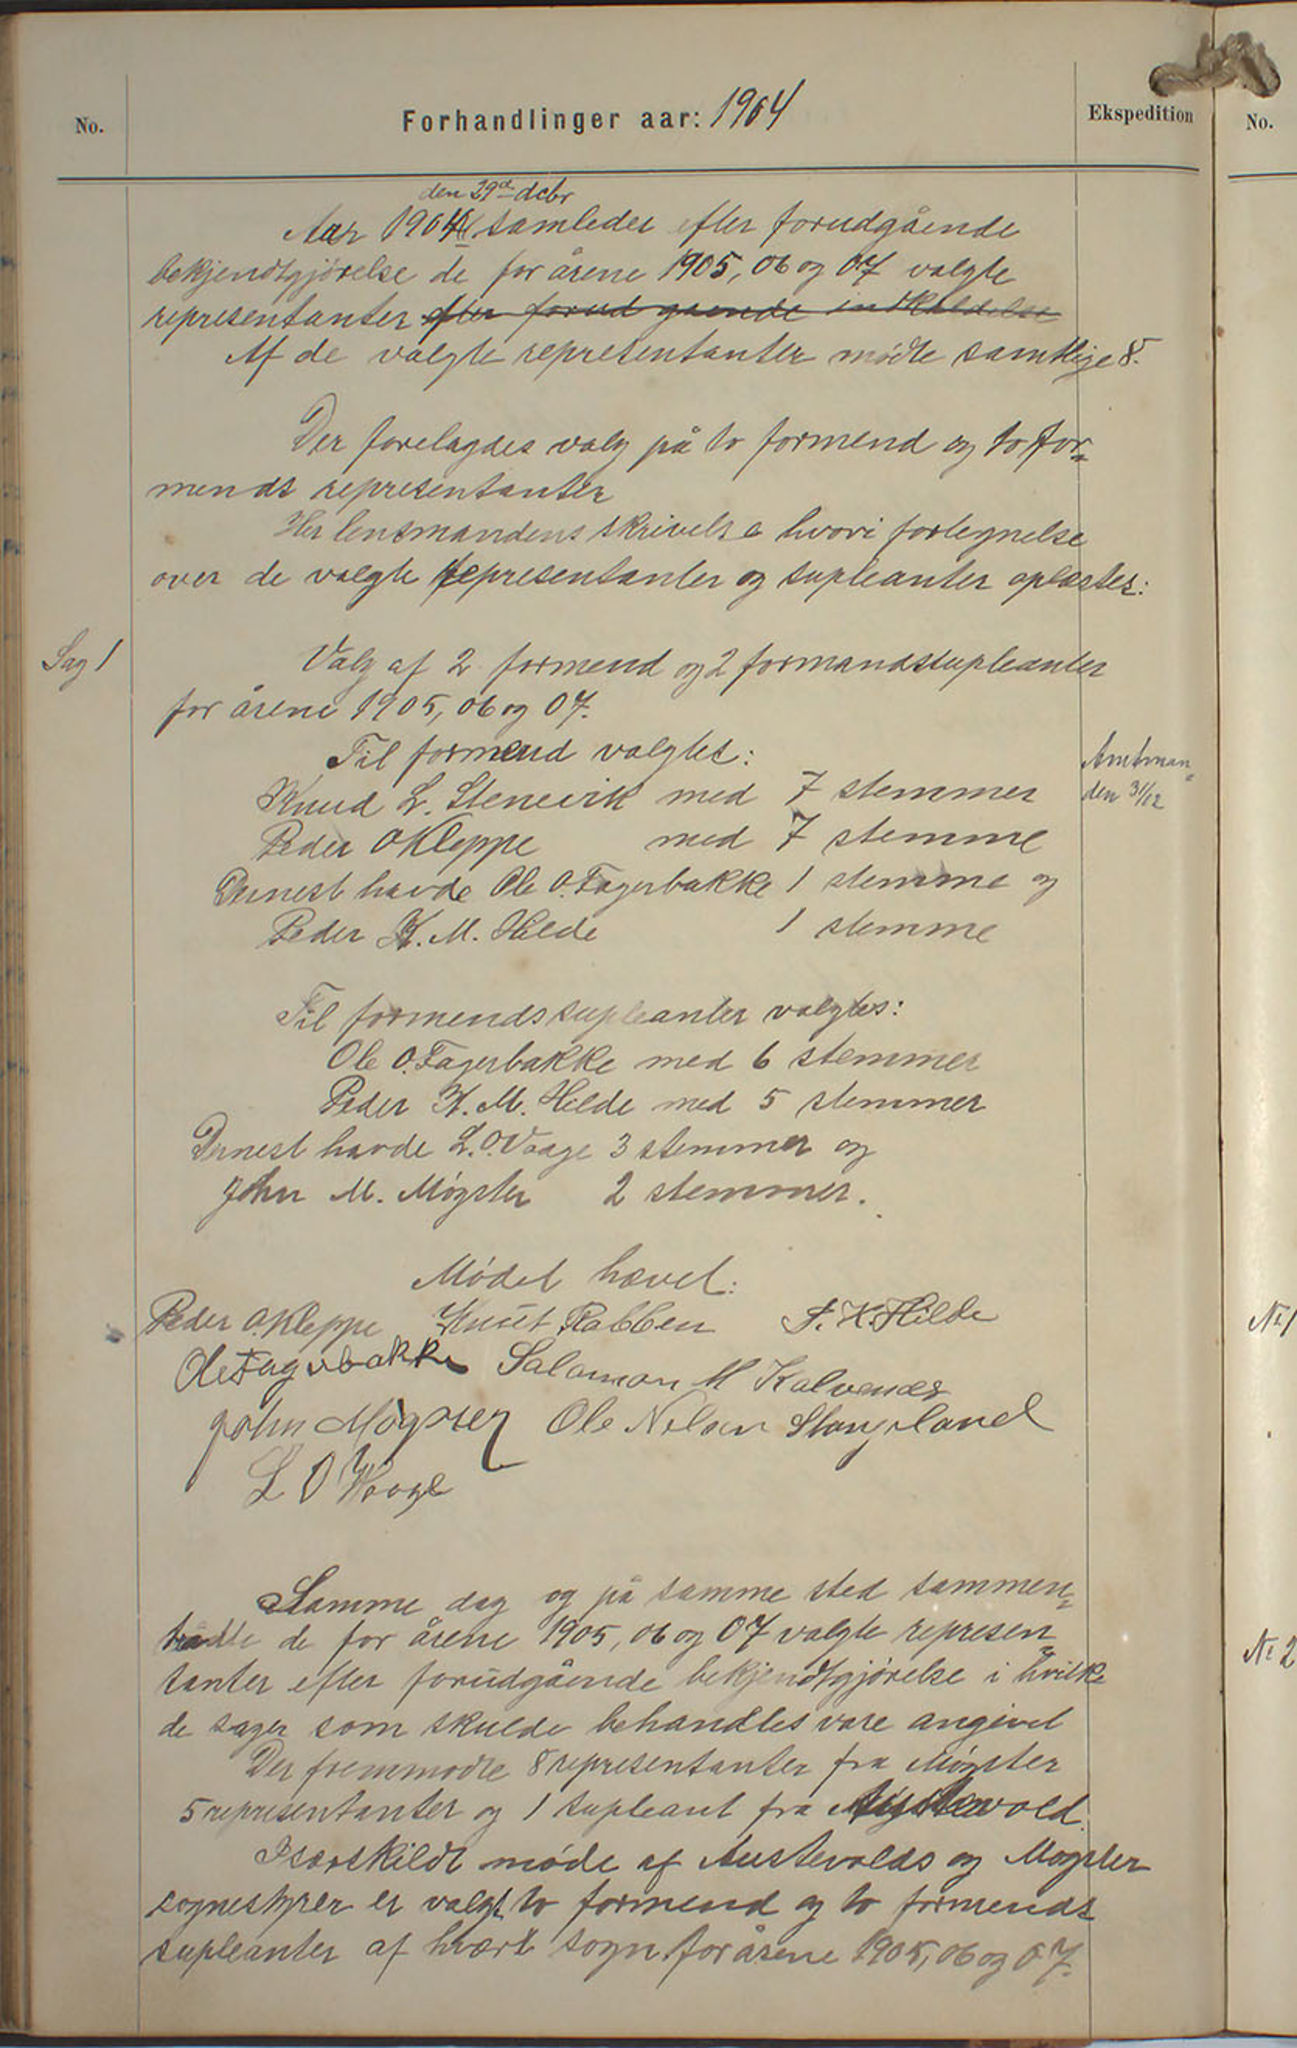 No.
Forhandlinger aar: 1904
Ekspedition
No.
den 29de dcbr
Aar 1904 samledes efter forudgående
bekjendtgjørelse de for årene 1905, 06 og 07 valgte
representanter efter forudgaende indkaldelse
Af de valgte representanter mødte samtlige 8.
Der forelagdes valg på to formend og to for-
mends representanter
Her lensmandens skrivelse hvori fortegnelse
over de valgte representanter og supleanter oplæstes:
Sag 1
Valg af 2 formend og 2 formandssupleanter
for årene 1905, 06 og 07.
Til formend valgtes:
Knud L. Stenevik med 7 stemmer
Amtman-
den 31/12
Peder O Kleppe med 7 stemme
Dernest havde Ole O. Fagerbakke 1 stemme og
Peder K. M. Hilde 1 stemme
Til formendssupleanter valgtes:
Ole O. Fagerbakke med 6 stemmer
Peder K. M. Hilde med 5 stemmer
Dernest havde L. O. Vaage 3 stemmer og
John M. Møgster 2 stemmer.
Mødet hævet:
Peder O. Kleppe Knut Rabben P. K. Hilde
Ole Fagerbakke Salamon M Kalvenæs
John Møgster Ole Nelsen Stangeland
L O Waage
Samme dag og på samme sted sammen-
trådte de for årene 1905, 06 og 07 valgte represen-
tanter efter forudgående bekjendtgjørelse i hvilke
de sager som skulde behandles vare angivet
Der fremmødte 8 representanter fra Møgster
5 representanter og 1 supleant fra Austevold.
I særskildt møde af Austevolds og Møgster
sognestyrer er valgt to formend og to formends
supleanter af hvert sogn for årene 1905, 06 og 07.
No 1
No 2